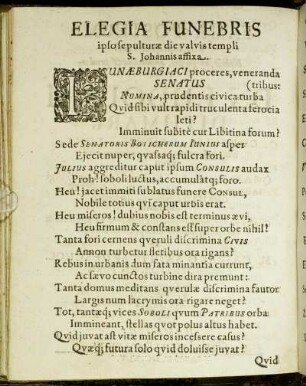 ELEGIA FUNEBRIS
ipso sepulturæ die valvis templi
S. Johannis affixa.
LUNÆBURGIACI proceres, veneranda
SENATUS (tribus:
NOMINA, prudentis civica turba
Qvid sibi vult rapidi truculenta ferocia
leti?
Imminuit subitè cur Libitina forum?
Sede SENATORIS BOISCHERUM JUNIUS asper
Ejecit nuper, qvasaq; fulcra fori.
JULIUS aggreditur caput ipsum CONSULIS audax
Proh! soboli luctus, accumulatq; foro.
Heu! jacet immiti sublatus funere CONSUL,
Nobile totius qvi caput urbis erat.
Heu miseros! dubius nobis est terminus ævi,
Heu firmum & constans est super orbe nihil?
Tanta fori cernens qveruli discrimina CIVIS
Annon turbetur fletibus ora rigans?
Rebus in urbanis dum fata minantia currunt,
Ac sævo cunctos turbine dira premunt:
Tanta domus meditans qverulæ discrimina fautor
Largis num lacrymis ora rigare neget?
Tot, tantæq; vices SOBOLI qvum PATRIBUS orbæ
Immineant, stellas qvot polus altus habet.
Qvid juvat ast vitæ miseros incessere casus?
Qvæq; futura solo qvid doluisse juvat?
Qvid